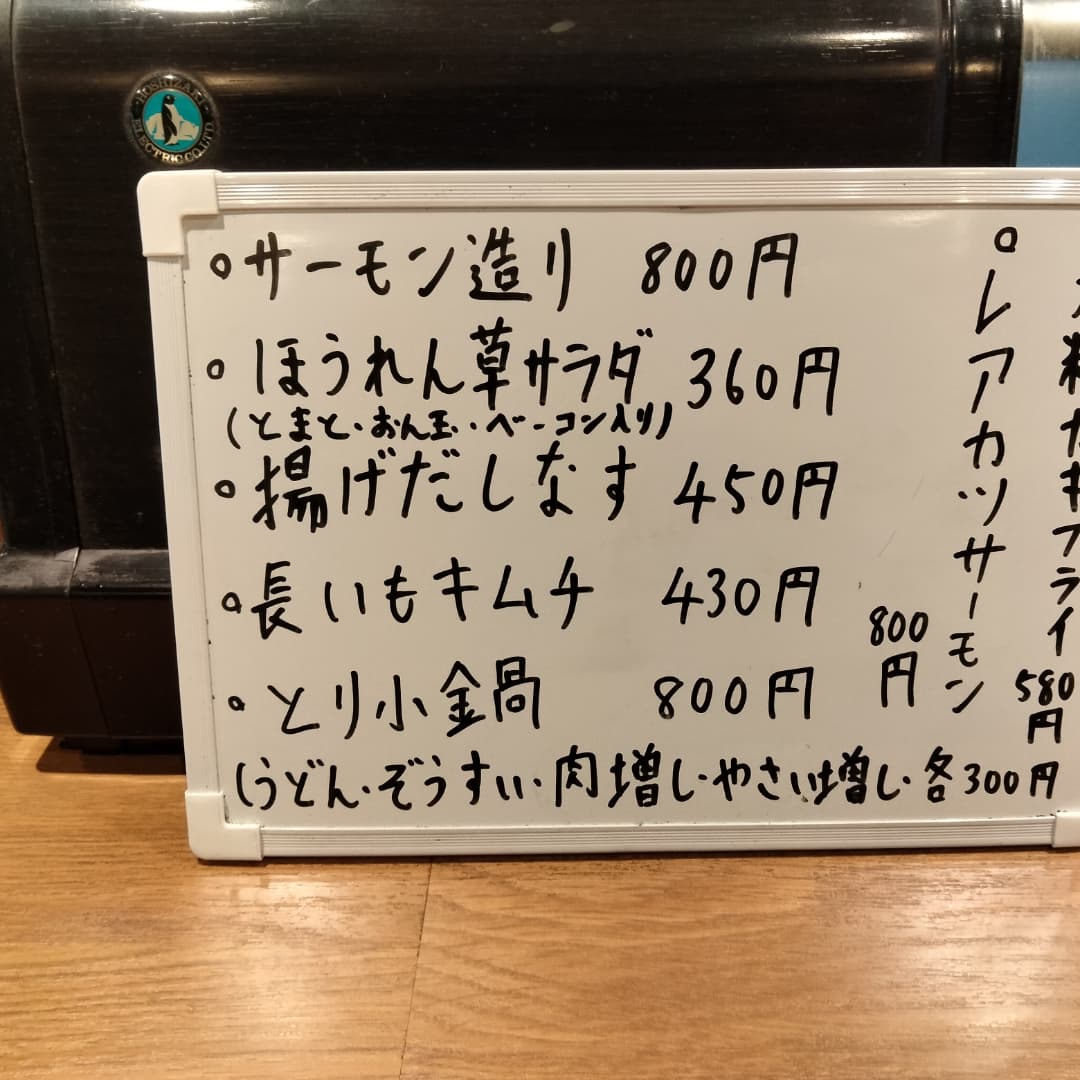 HOSHIZAKI
ELECTRIC CO.,LTD
○サーモン造り 800円
○ほうれん草サラダ 360円
(とまと・おん玉・ベーコン入り)
○揚げだしなす 450円
○長いもキムチ 430円
○とり小金鍋 800円
(うどん・ぞうすい・肉増し・やさい増し・各300円
○レアカツサーモン
800円
カキフライ
580円